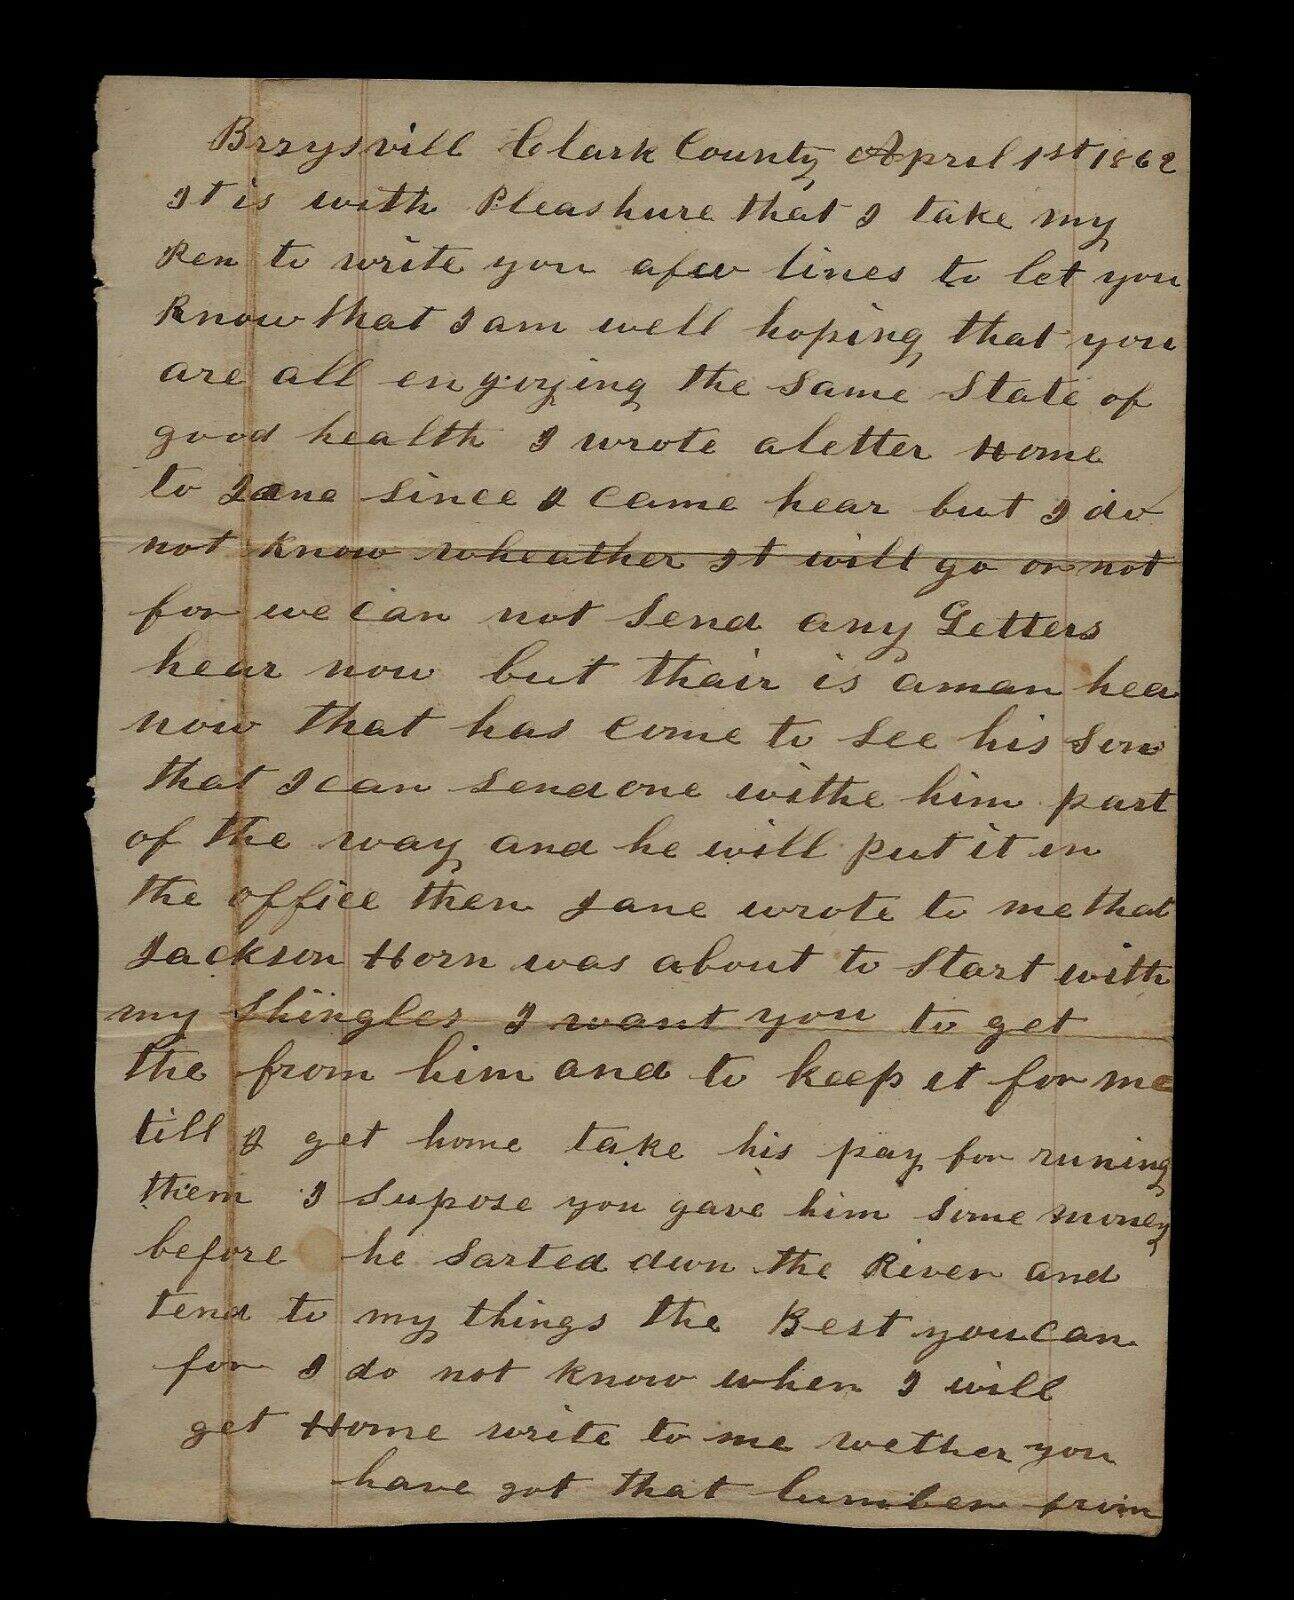 Brrysvill Clark County April 1st 1862
It is with Pleashure that I take my
Pen to write you afew lines to let you
Know that I am well hoping that you
are all engoying the Same State of
good health I wrote aletter Home
to Jane since I came hear but I do
not know wheather It will go or not
for we can not Send any Letters
hear now but thair is aman hea
now that has come to see his Son
that I can send one withe him part
of the way and he will put it in
the office then Jane wrote to me that
Jackson Horn was about to Start with
my Shingles I want you to get
the from him and to keep it for me
till I get home take his pay for runing
them I supose you gave him some money
before he sarted dwn the River and
tend to my things the Best you can
for I do not know when I will
get Home write to me wether you
have got that lumber from